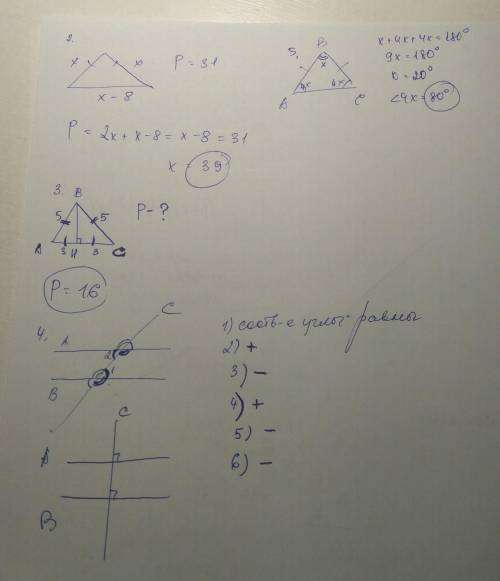 2.
x x
x - 8
P = 31
P = 2x + x - 8 = x - 8 = 31
x = 39
5, B
x
4x 4x
A C
x + 4x + 4x = 180°
9x = 180°
x = 20°
<4x = 80°
3. B
5 5
A 3 H 3 C
P - ?
P = 16
4,
C
2
1
B
C
A
B
1) соотв-е углы - равны
2) +
3) -
4) +
5) -
6) -